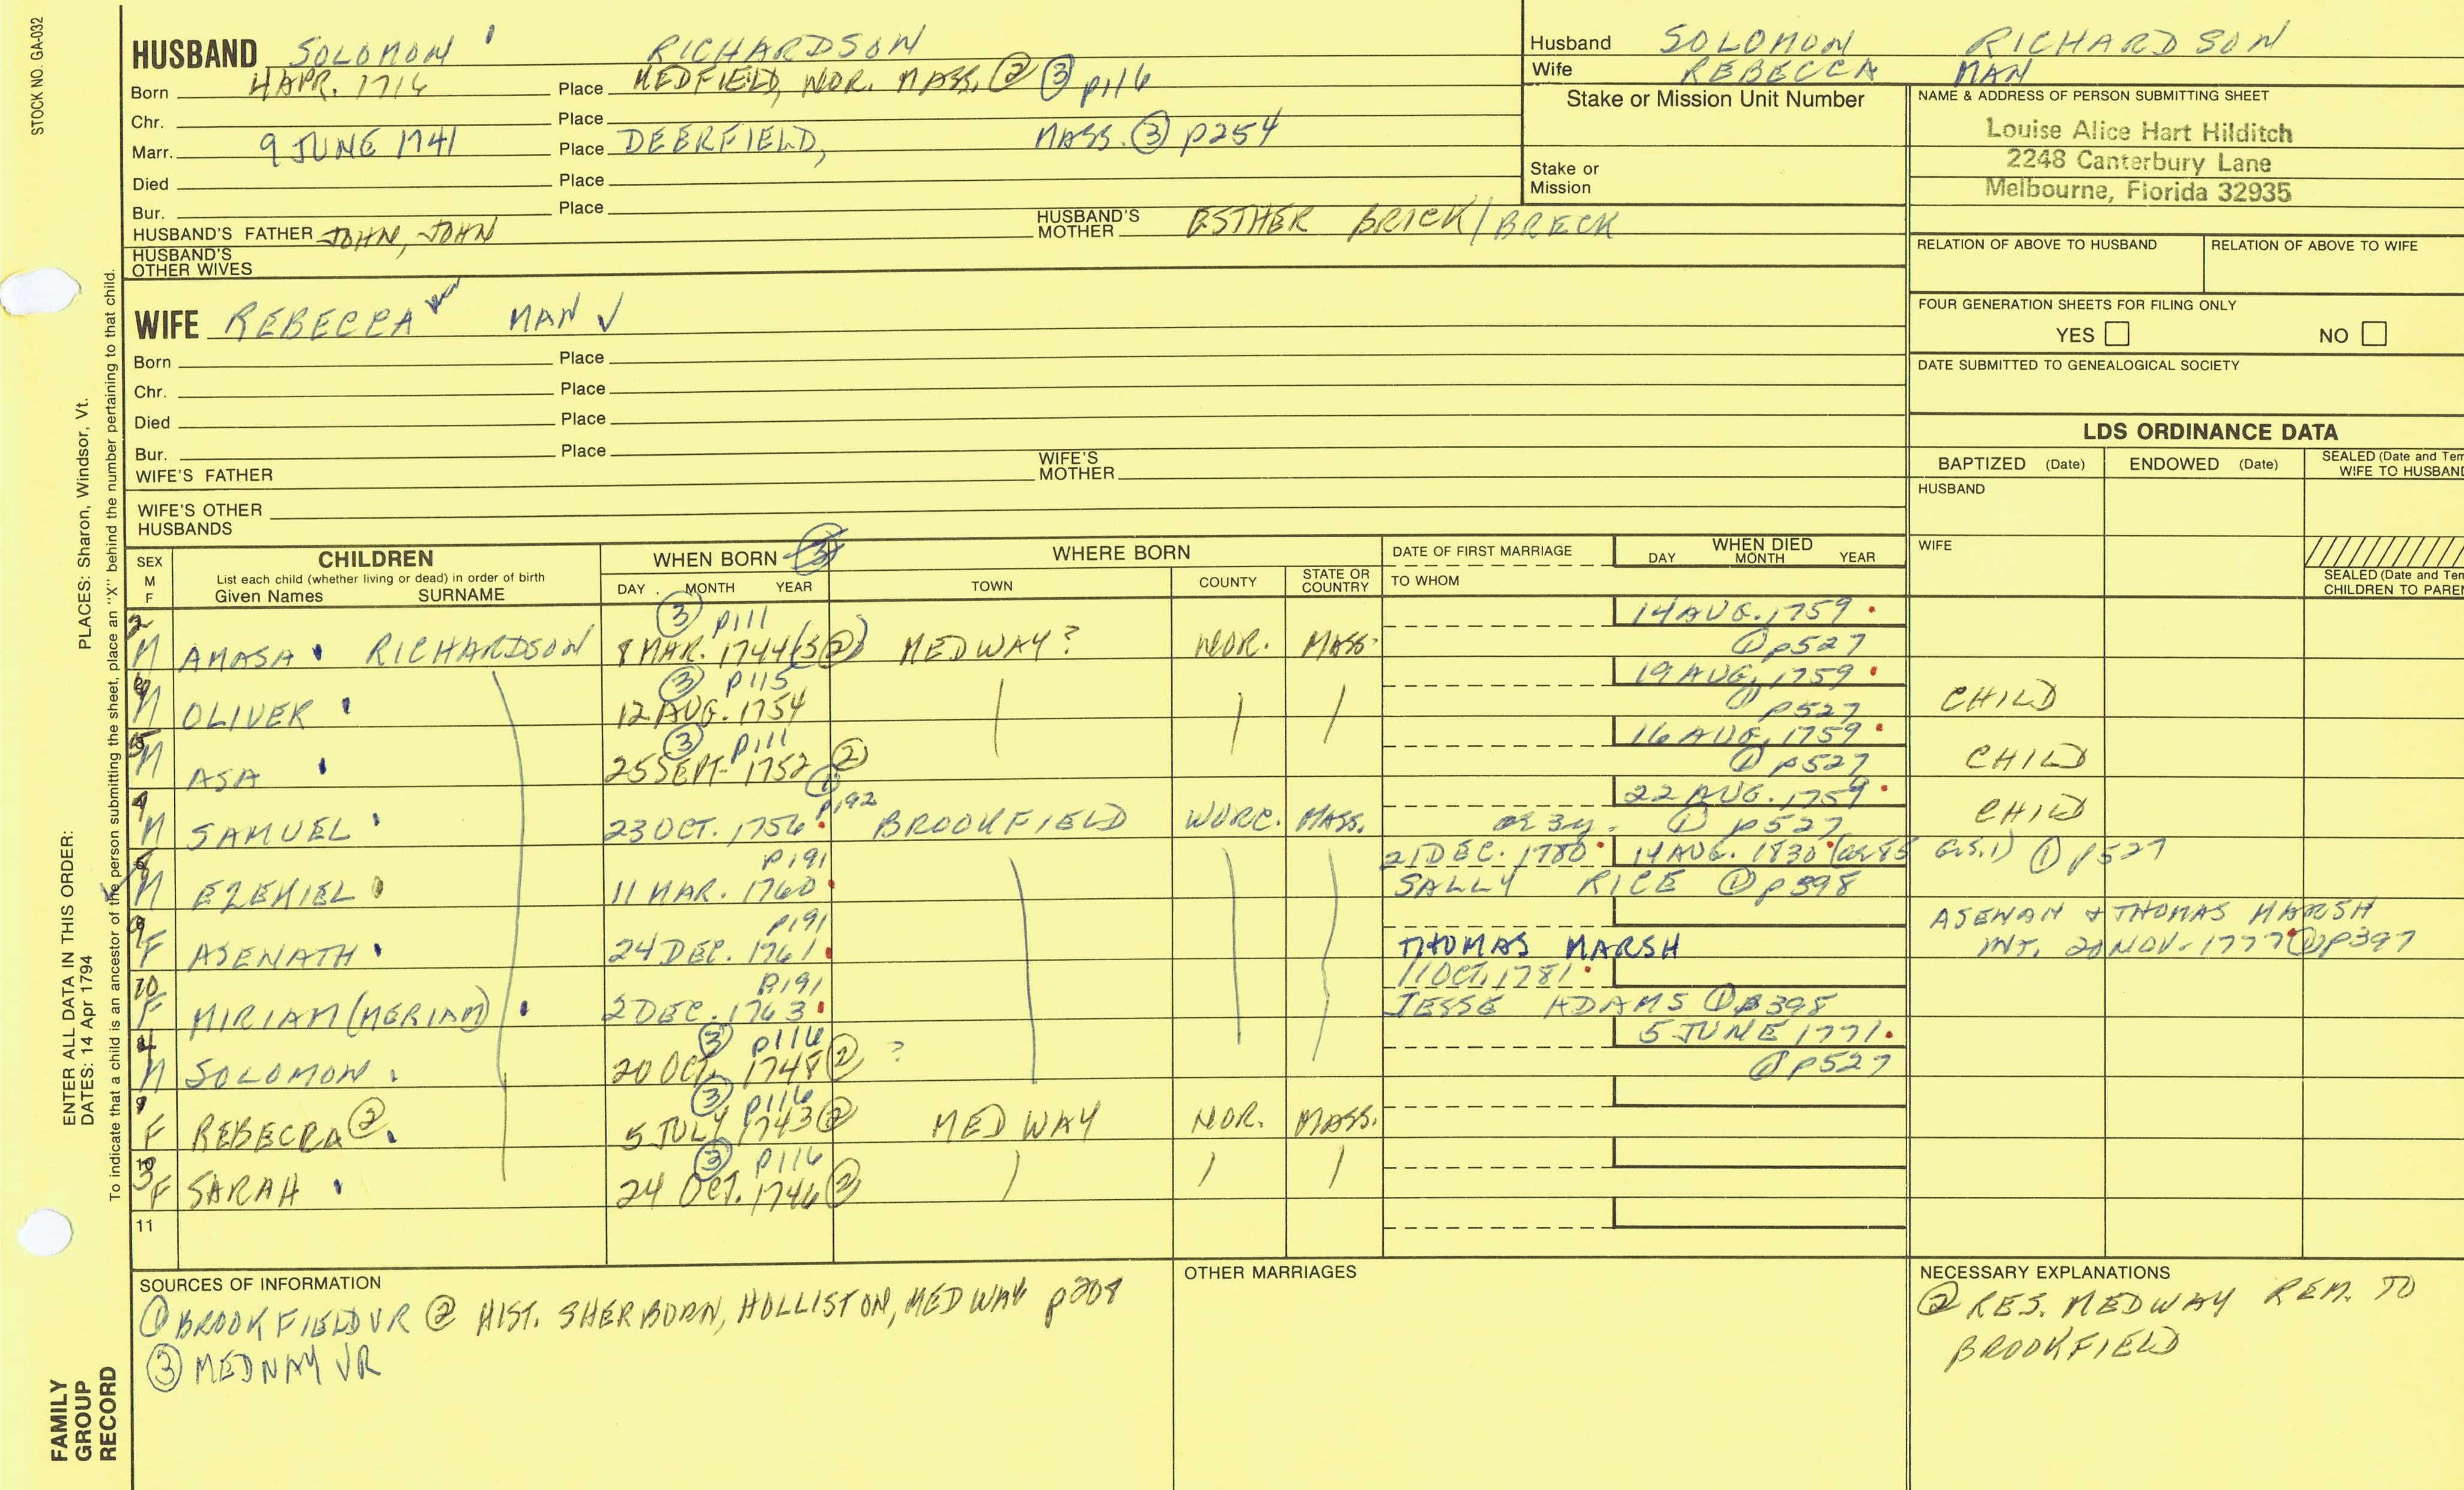 STOCK NO. GA-032
HUSBAND SOLOMON RICHARDSON
Born 4 APR. 1716 Place MEDFIELD, NOR. MASS. ② ③ p116
Chr. Place
Marr. 9 JUNE 1741 Place DEERFIELD, MASS. ③ p254
Died Place
Bur. Place
HUSBAND'S FATHER JOHN, JOHN HUSBAND'S MOTHER ESTHER BRICK/BRECK
HUSBAND'S OTHER WIVES
WIFE REBECCA MAN ✓
Born Place
Chr. Place
Died Place
Bur. Place
WIFE'S FATHER WIFE'S MOTHER
WIFE'S OTHER HUSBANDS
Husband SOLOMON RICHARDSON
Wife REBECCA MAN
Stake or Mission Unit Number
Stake or Mission
NAME & ADDRESS OF PERSON SUBMITTING SHEET
Louise Alice Hart Hilditch
2248 Canterbury Lane
Melbourne, Florida 32935
RELATION OF ABOVE TO HUSBAND RELATION OF ABOVE TO WIFE
FOUR GENERATION SHEETS FOR FILING ONLY
YES NO
DATE SUBMITTED TO GENEALOGICAL SOCIETY
LDS ORDINANCE DATA
BAPTIZED (Date) ENDOWED (Date) SEALED (Date and Tem
WIFE TO HUSBAND
HUSBAND
WIFE
SEALED (Date and Tem
CHILDREN TO PAREN
SEX M F CHILDREN WHEN BORN ③ WHERE BORN DATE OF FIRST MARRIAGE WHEN DIED
List each child (whether living or dead) in order of birth
Given Names SURNAME DAY MONTH YEAR TOWN COUNTY STATE OR COUNTRY TO WHOM DAY MONTH YEAR
③ p111 14 AUG. 1759
2 M AMASA RICHARDSON 8 MAR. 1744(5②) MEDWAY? NOR. MASS. ① p527
③ p115 19 AUG. 1759
M OLIVER 12 AUG. 1754 ① p527 CHILD
③ p111 16 AUG. 1759
5 M ASA 25 SEPT. 1752 ② ① p527 CHILD
① p192 22 AUG. 1759
M SAMUEL 23 OCT. 1756 BROOKFIELD WORC. MASS. ae 3y. ① p527 CHILD
p191 21 DEC. 1780 14 AUG. 1830 (ae 85 G.S.1) ① p527
M EZEKIEL 11 MAR. 1760 SALLY RICE ① p398
p191
F ASENATH 24 DEC. 1761 THOMAS MARSH
ASENAH & THOMAS MARSH
INT. 20 NOV. 1777 ① p397
p191 11 OCT. 1781
10 F MIRIAM (MERIAM) 2 DEC. 1763 JESSE ADAMS ① p398
③ p116 5 JUNE 1771
4 M SOLOMON 20 OCT. 1748 ② ? ① p527
③ p116
F REBECCA ② 5 JULY 1743 ② MEDWAY NOR. MASS.
③ p116
3 F SARAH 24 OCT. 1746 ②
11
SOURCES OF INFORMATION
① BROOKFIELD VR ② HIST. SHERBORN, HOLLISTON, MEDWAY p208
③ MEDWAY VR
OTHER MARRIAGES
NECESSARY EXPLANATIONS
② RES. MEDWAY REM. TO
BROOKFIELD
FAMILY GROUP RECORD
ENTER ALL DATA IN THIS ORDER:
DATES: 14 Apr 1794
PLACES: Sharon, Windsor, Vt.
To indicate that a child is an ancestor of the person submitting the sheet, place an "X" behind the number pertaining to that child.